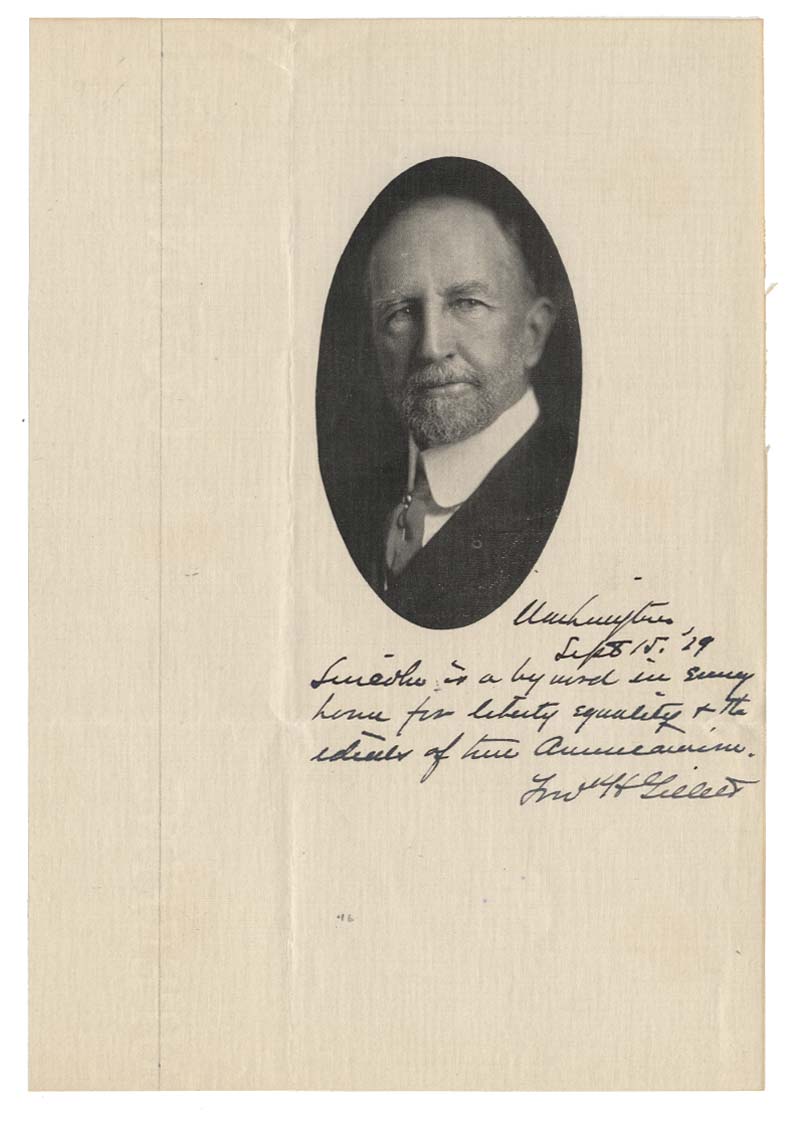 Washington
Sept 15. '29
Lincoln is a by word in every
home for liberty equality & the
ideals of true Americanism.
H Gillett